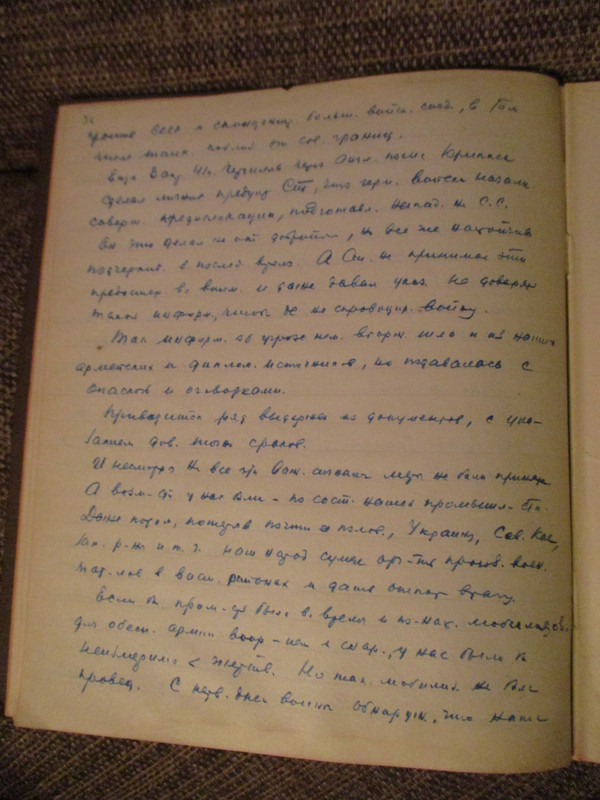 против всех и сплоченц. больш. войск. соед., в том
числе танк. вблизи от сов. границ.
Еще в апр. 41г. Черчилль через англ. посла Криппса
сделал личное предупр. Ст., что герм. войска начали
соверш. передислокации, подготавл. напад. на С.С.
Он это делал не от доброты, но все же настойчив.
подчеркив. в послед. время. А Ст. не принимал эти
предостер. во вним. и даже давал указ. не доверять
такой информ., чтобы де не спровоцир. войну.
Так. информ. об угрозе нем. вторж. шла и из наших
армейских и диплом. источников, но подавалась с
опаской и оговорками.
Приводится ряд выдержек из документов, с ука-
занием дов. точн. сроков.
И несмотря на все эти важ. сигналы меры не были приняты
А возм-сти у нас были - по сост. нашей промышл-ти.
Даже потом, потеряв почти пол., Украину, Сев. Кав.,
Зап. р-ны и т.д. наш народ сумел орг-ть произв. воен.
мат-лов в вост. районах и дать отпор врагу.
Если б пром-сть была во время и по-наст. мобилизов.
для обесп. армии воор-ием и снар., у нас было б
неизмеримо < жертв. Но так. мобилиз. не был
провед. С перв. дней войны обнаруж., что наша